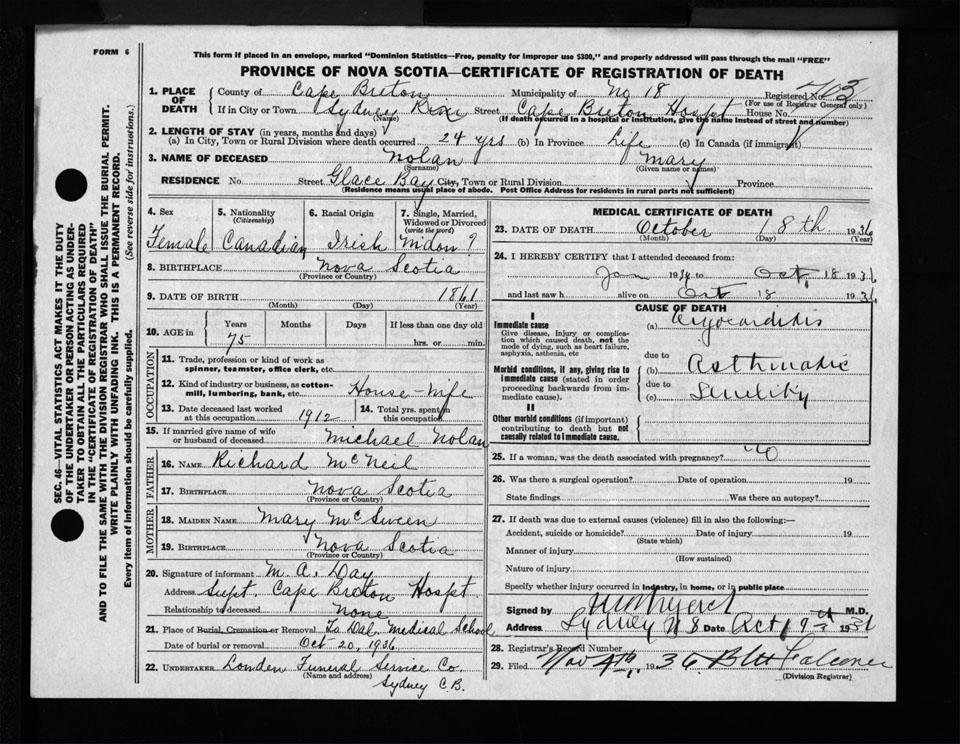 FORM 6
This form if placed in an envelope, marked "Dominion Statistics—Free, penalty for improper use $300," and properly addressed will pass through the mail "FREE"
PROVINCE OF NOVA SCOTIA—CERTIFICATE OF REGISTRATION OF DEATH
SEC. 46—VITAL STATISTICS ACT MAKES IT THE DUTY
OF THE UNDERTAKER OR PERSON ACTING AS UNDER-
TAKER TO OBTAIN ALL THE PARTICULARS REQUIRED
IN THE "CERTIFICATE OF REGISTRATION OF DEATH"
AND TO FILE THE SAME WITH THE DIVISION REGISTRAR WHO SHALL ISSUE THE BURIAL PERMIT.
WRITE PLAINLY WITH UNFADING INK. THIS IS A PERMANENT RECORD.
Every item of information should be carefully supplied. (See reverse side for instructions.)
1. PLACE OF DEATH County of Cape Breton Municipality of No 18 Registered No.
(For use of Registrar General only)
If in City or Town Sydney Street Cape Breton Hospt House No.
(Name) (If death occurred in a hospital or institution, give the name instead of street and number)
2. LENGTH OF STAY (in years, months and days)
(a) In City, Town or Rural Division where death occurred 24 yrs (b) In Province Life (c) In Canada (if immigrant)
3. NAME OF DECEASED Nolan Mary
(Surname) (Given name or names)
RESIDENCE No Street Glace Bay City, Town or Rural Division Province
(Residence means usual place of abode. Post Office Address for residents in rural parts not sufficient)
4. Sex 5. Nationality (Citizenship) 6. Racial Origin 7. Single, Married, Widowed or Divorced (write the word)
Female Canadian Irish Widow ?
8. BIRTHPLACE Nova Scotia
(Province or Country)
9. DATE OF BIRTH 1861
(Month) (Day) (Year)
10. AGE in Years Months Days If less than one day old
75 hrs. or min.
OCCUPATION
11. Trade, profession or kind of work as
spinner, teamster, office clerk, etc.
12. Kind of industry or business, as cotton-
mill, lumbering, bank, etc. House-wife
13. Date deceased last worked at this occupation 1912 14. Total yrs. spent in this occupation
15. If married give name of wife
or husband of deceased Michael Nolan
FATHER
16. NAME Richard McNeil
17. BIRTHPLACE Nova Scotia
(Province or Country)
MOTHER
18. MAIDEN NAME Mary McSween
19. BIRTHPLACE Nova Scotia
(Province or Country)
20. Signature of informant M. A. Day
Address Supt. Cape Breton Hospt.
Relationship to deceased None
21. Place of Burial, Cremation or Removal To Dal. Medical School
Date of burial or removal Oct 20, 1936
22. UNDERTAKER Londen Funeral Service Co.
(Name and address) Sydney C.B.
MEDICAL CERTIFICATE OF DEATH
23. DATE OF DEATH October 18th. 1936
(Month) (Day) (Year)
24. I HEREBY CERTIFY that I attended deceased from:
Jan 1934 to Oct. 18 1936
and last saw h alive on Oct 18 1936
CAUSE OF DEATH
I
Immediate cause
Give disease, injury or complica-
tion which caused death, not the
mode of dying, such as heart failure,
asphyxia, asthenia, etc
(a) Myocarditis
due to
Morbid conditions, if any, giving rise to
immediate cause (stated in order
proceeding backwards from im-
mediate cause).
(b) Asthmatic
due to
(c) Senility
II
Other morbid conditions (if important)
contributing to death but not
causally related to immediate cause.
25. If a woman, was the death associated with pregnancy? No
26. Was there a surgical operation? Date of operation 19
State findings Was there an autopsy?
27. If death was due to external causes (violence) fill in also the following:—
Accident, suicide or homicide? Date of injury 19
(State which)
Manner of injury
(How sustained)
Nature of injury
Specify whether injury occurred in industry, in home, or in public place
Signed by M.D.
Address Sydney N S Date Oct 19 1936
28. Registrar's Record Number
29. Filed Nov 4th, 1936 Falconer
(Division Registrar)